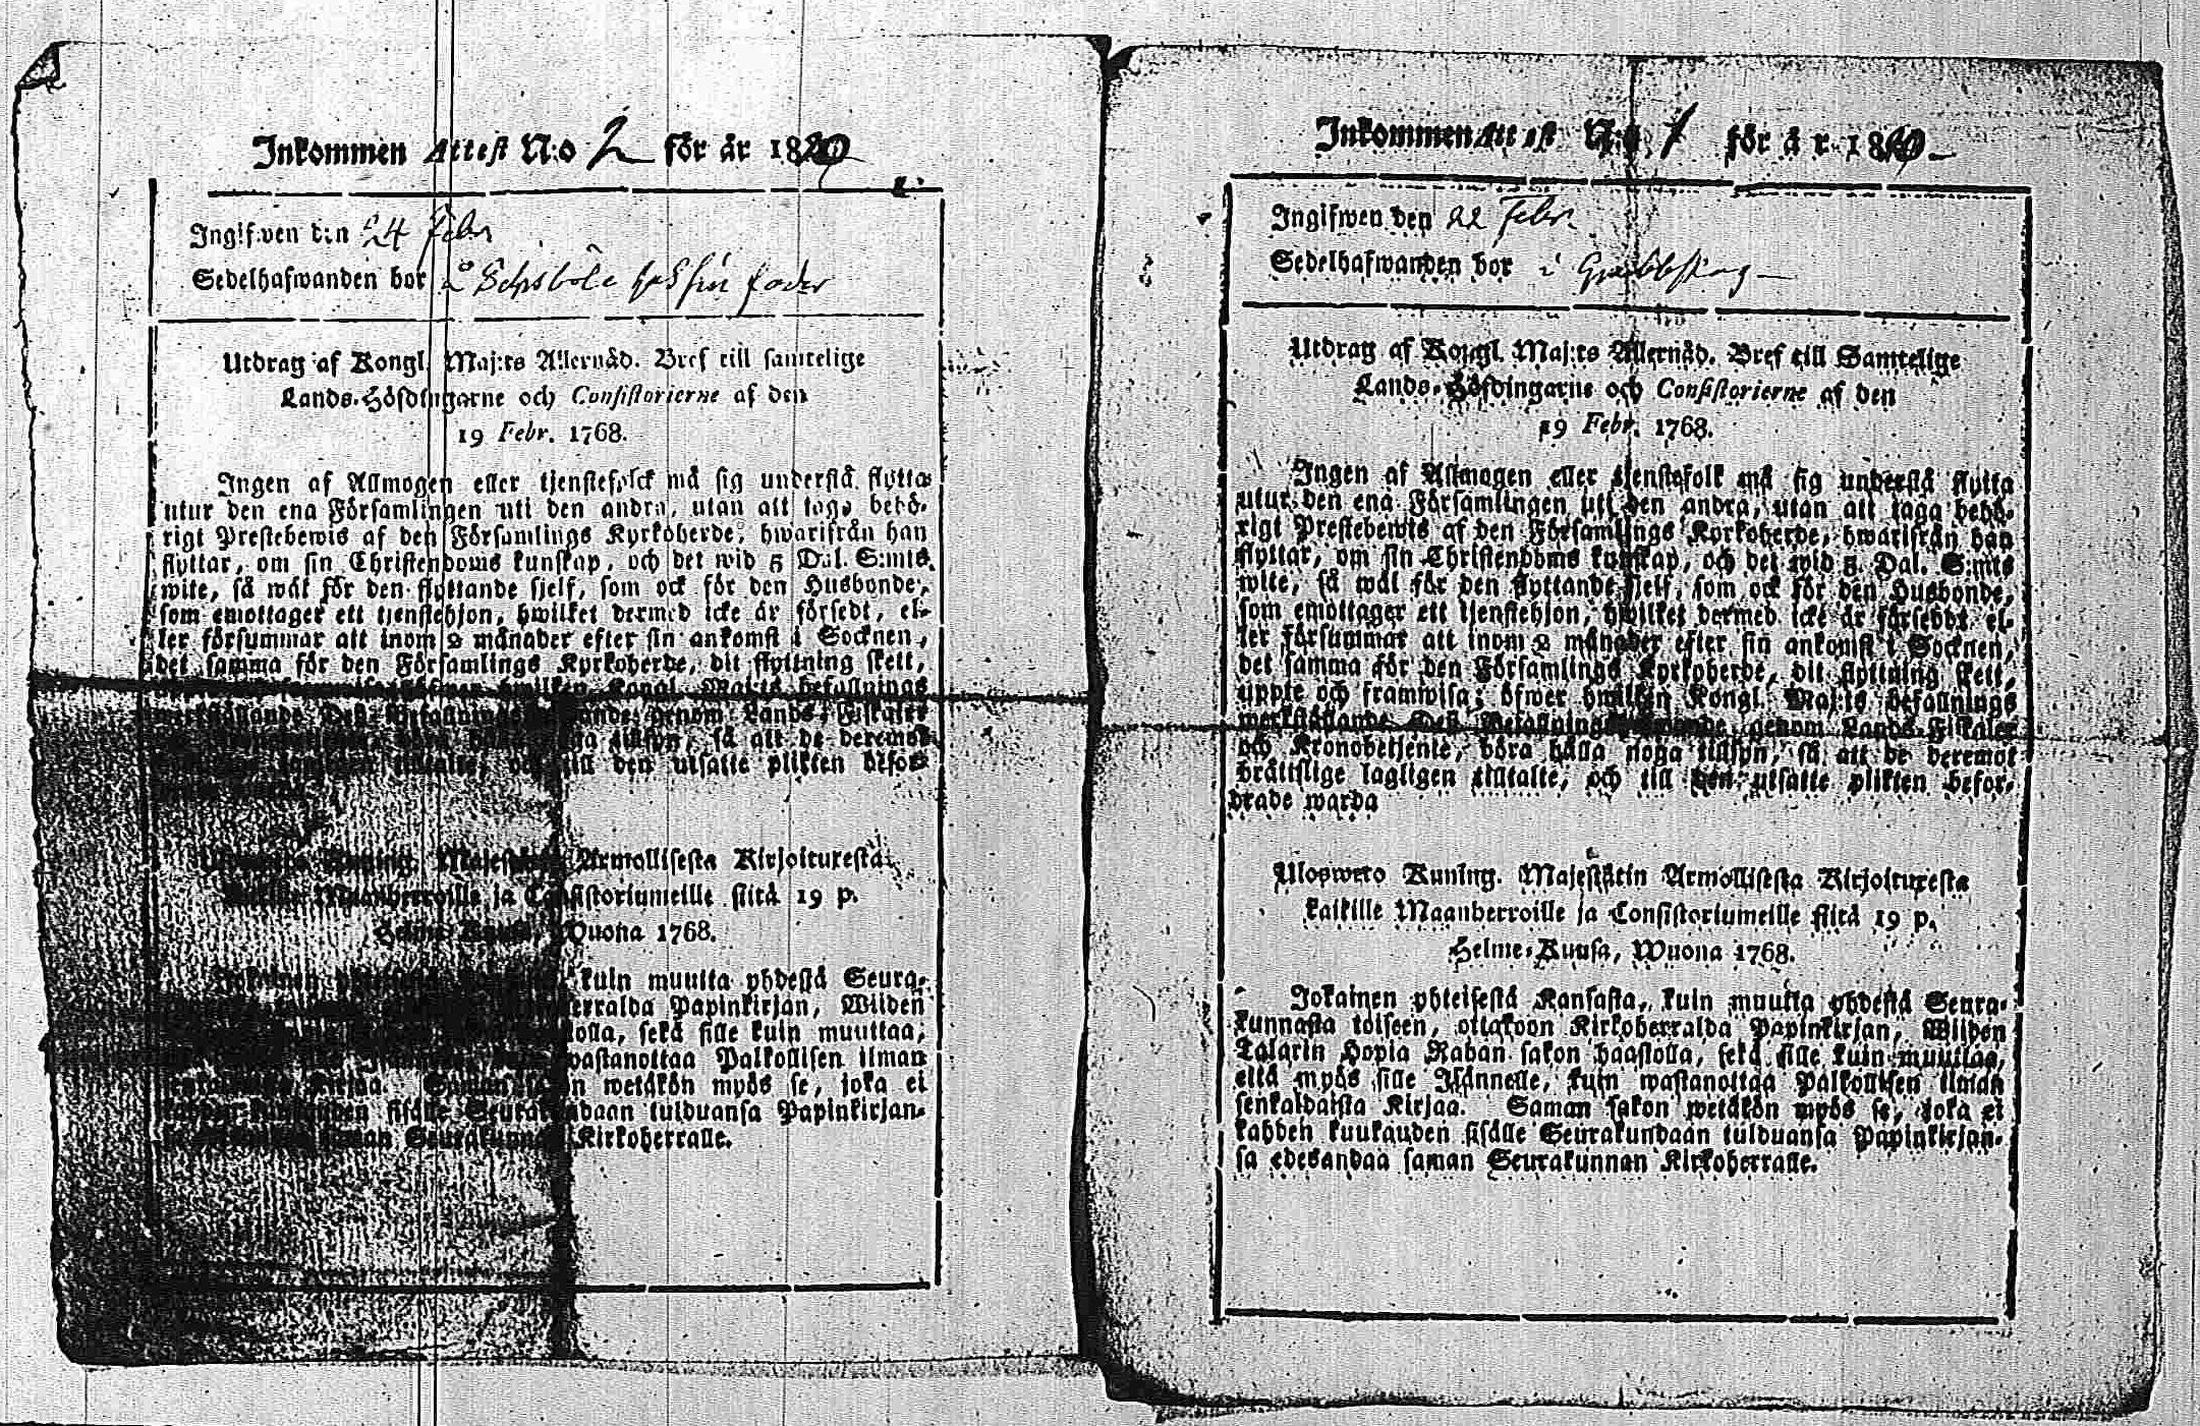 Inkommen Attest N:o 2 för år 1820
Ingifwen den 24 Febr
Sedelhafwanden bor å hos sin fader
Utdrag af Kongl. Maj:ts Allernåd. Bref till samtelige
Lands-Höfdingarne och Consistorierne af den
19 Febr. 1768.
Ingen af Allmogen eller tjenstefolck må sig understå flytta
utur den ena Församlingen uti den andra, utan att taga behö-
rigt Prestebewis af den Församlings Kyrkoherde, hwarifrån han
flyttar, om sin Christendoms kunskap, och det wid 5 Dal. S:mts
wite, så wäl för den flyttande sjelf, som ock för den Husbonde,
som emottager ett tjenstehjon, hwilket dermed icke är försedt, el-
ler försummar att inom 2 månader efter sin ankomst i Socknen,
det samma för den Församlings Kyrkoherde, dit flyttning skett,
hwilken Kongl. Maj:ts befallnings
werkställande Dess Befallningshafwande, genom Lands-Fiskaler
noga tillsyn, så att de deremot
lagligen tilltalte, och till den utsatte plikten befor-
Kuning. Majestätin Armollisesta Kirjoituxesta
kaikille Maanherroille ja Consistoriumeille siitä 19 p.
Helme-Kuusa, Wuona 1768.
Jokainen yhteisestä kuin muutta yhdestä Seura-
Papinkirjan, Wiiden
sekä sille kuin muuttaa,
wastanottaa Palkollisen ilman
senkaldaista Kirjaa. Saman sakon wetäkön myös se, joka ei
kahden kuukauden sisälle Seurakundaan tulduansa Papinkirjan-
saman Seurakunnan Kirkoherralle.
Inkommen Attest N:o 1 för år 1820
Ingifwen den 22 Febr.
Sedelhafwanden bor i Grabbskog
Utdrag af Kongl. Maj:ts Allernåd. Bref till Samtelige
Lands-Höfdingarne och Consistorierne af den
19 Febr. 1768.
Ingen af Allmogen eller tjenstefolk må sig understå flytta
utur den ena Församlingen uti den andra, utan att taga behö-
rigt Prestebewis af den Församlings Kyrkoherde, hwarifrån han
flyttar, om sin Christendoms kunskap, och det wid 5. Dal. S:mts
wite, så wäl för den flyttande sjelf, som ock för den Husbonde,
som emottager ett tjenstehjon, hwilket dermed icke är försedt, el-
ler försummar att inom 2 månader efter sin ankomst i Socknen,
det samma för den Församlings Kyrkoherde, dit flyttning skett,
uppte och framwisa; öfwer hwilken Kongl. Maj:ts befallnings
werkställande Dess Befallningshafwande, genom Lands-Fiskaler
och Kronobetjente, böra hålla noga tillsyn, så att de deremot
brättslige lagligen tilltalte, och till den utsatte plikten befor-
drade warda
Ulosweto Kuning. Majestätin Armollisesta Kirjoituxesta
kaikille Maanherroille ja Consistoriumeille siitä 19 p.
Helme-Kuusa, Wuona 1768.
Jokainen yhteisestä Kansasta, kuin muutta yhdestä Seura-
kunnasta toiseen, ottakoon Kirkoherralda Papinkirjan, Wiiden
Talarin Hopia Rahan sakon haastolla, sekä sille kuin muuttaa,
että myös sille Isännelle, kuin wastanottaa Palkollisen ilman
senkaldaista Kirjaa. Saman sakon wetäkön myös se, joka ei
kahden kuukauden sisälle Seurakundaan tulduansa Papinkirjan-
sa edesandaa saman Seurakunnan Kirkoherralle.